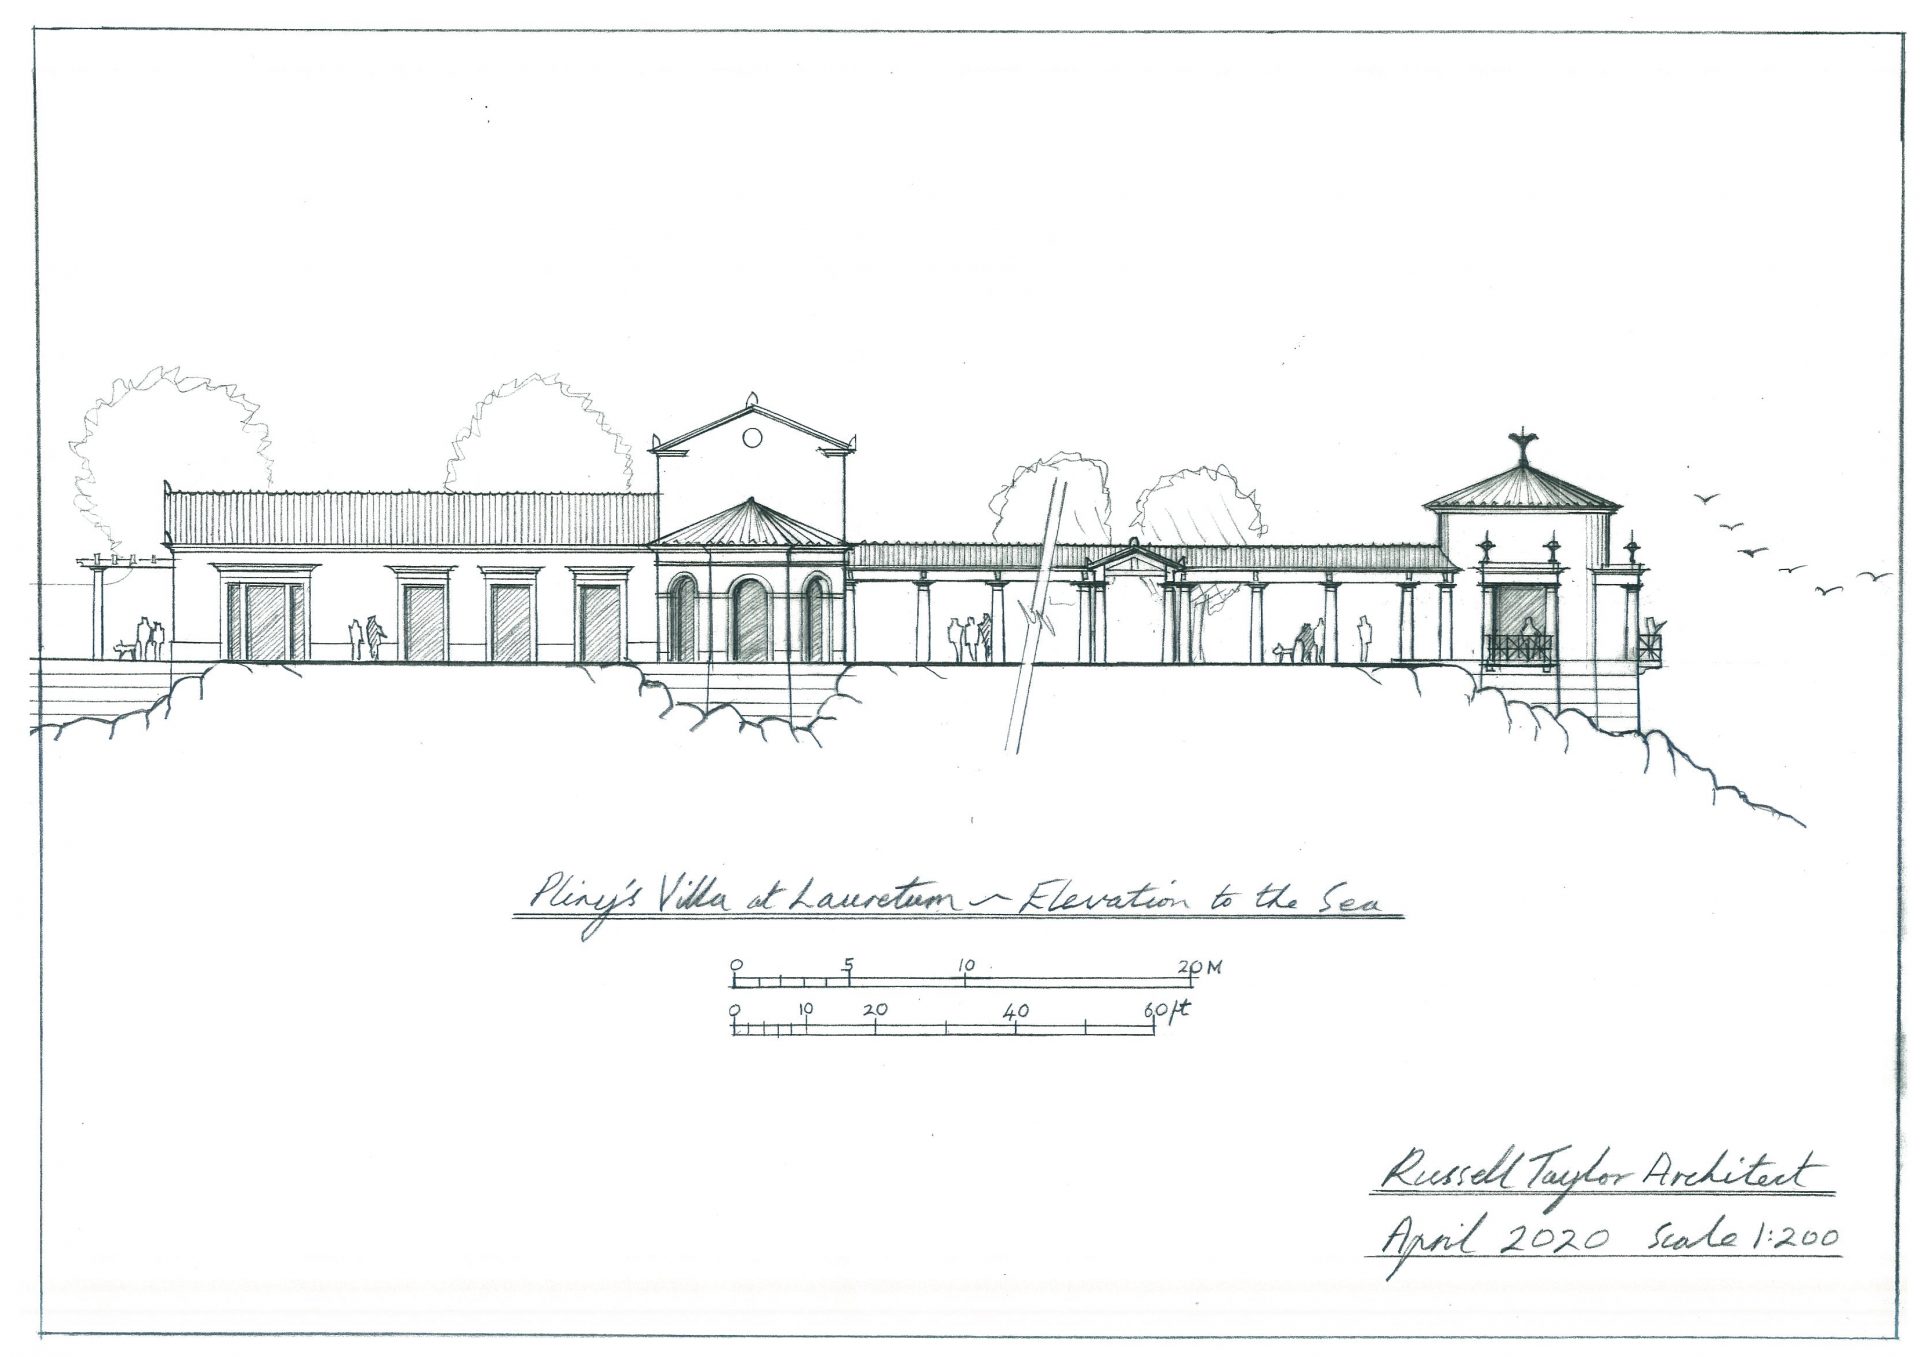 Pliny's Villa at Lauretum ~ Elevation to the Sea
0 5 10 20 M
0 10 20 40 60 ft
Russell Taylor Architect
April 2020 Scale 1:200